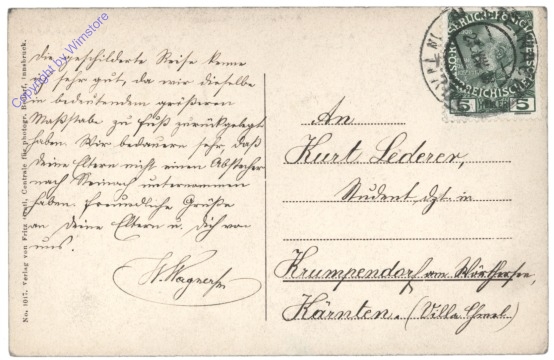 Die geschilderte Reise kenne
ich sehr gut, da wir dieselbe
in bedeutendem größeren
Maßstabe zu Fuß zurückgelegt
haben. Wir bedauern sehr, daß
deine Eltern nicht einen Abstecher
nach Steinach unternommen
haben. Freundliche Grüße
an deine Eltern u. dich von
uns.
W. Wagner
An
Kurt Lederer,
Student, dzt in
Krumpendorf am Wörthersee,
Kärnten. (Villa
No. 1017. Verlag von Fritz Centrale für photogr. Bedarf, Innsbruck.
Copyright by Wimstore
5 5